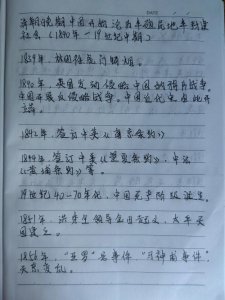 清朝晚期中国开始沦为半殖民地半封建
社会（1840年-19世纪中期）
1839年，林则徐虎门销烟。
1840年，英国发动侵略中国的鸦片战争。
中国开展反侵略战争。中国近代史由此开
端。
1842年，签订中英《南京条约》
1844年签订中美《望厦条约》，中法
《黄埔条约》等。
19世纪40-70年代，中国无产阶级诞生。
1851年，洪秀全领导金田起义，太平天
国建立。
1856年，"亚罗"号事件，"马神甫事件"
天京变乱。